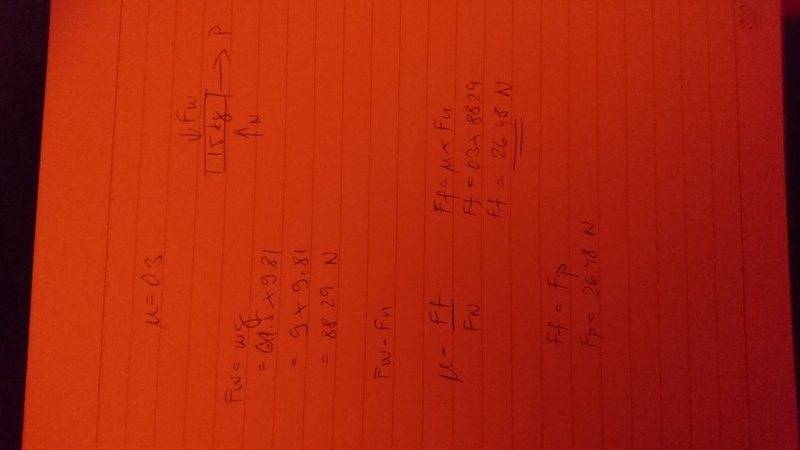 μ = 0.3
↓ Fw
15 kg → P
↑ N
Fw = mg
= 6x1.5 x 9.81
= 9 x 9.81
= 88.29 N
Fw = Fn
μ = Ff / FN
Ff = μ x Fn
Ff = 0.3 x 88.29
Ff = 26.48 N
Ff = Fp
Fp = 26.48 N